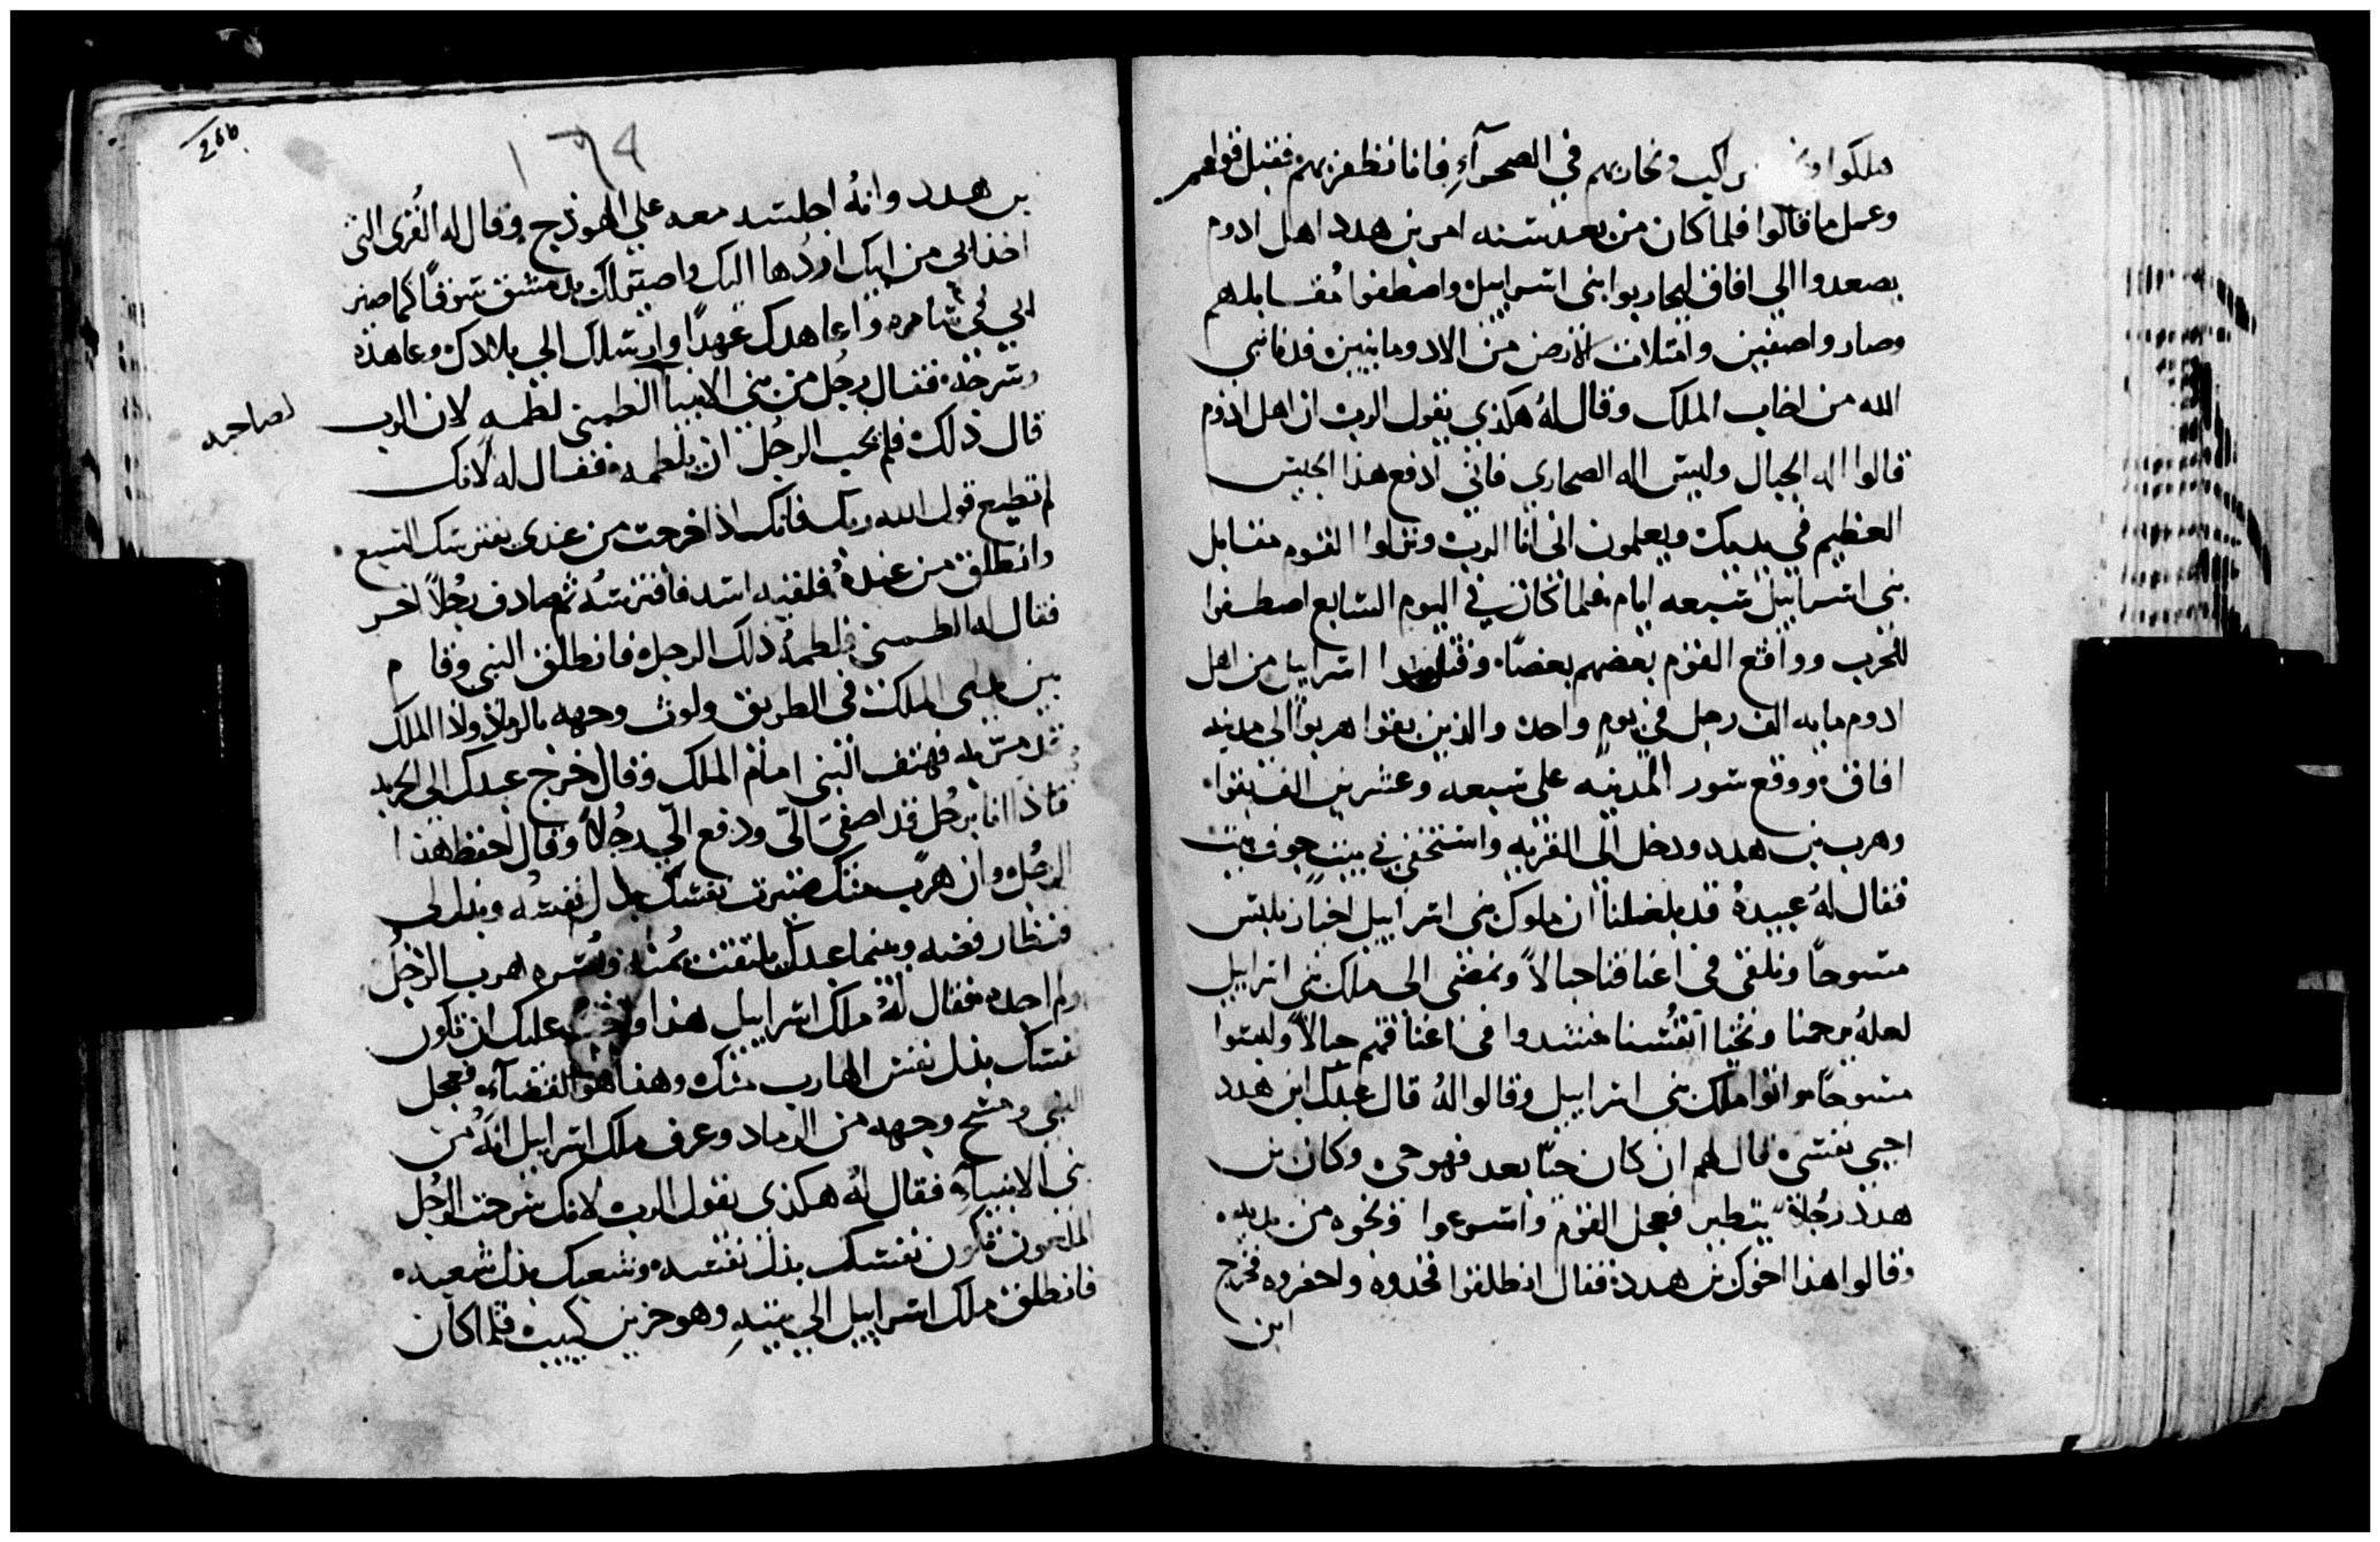 هلكوا اكب ونحاربهم في الصحرآءِ فاننا نظفر بهم فقبل قولهم
وعمل ما قالوا فلما كان من بعد سنه امر بن هدد اهل ادوم
يصعدوا الي افاق ليحاربوا بني اسراييل واصطفوا مُقابلهم
وصاروا صفين وامتلات الارض من الادومانيين فدنا نبي
الله من اخاب الملك وقال لهُ هكذي يقول الرب ان اهل ادوم
قالوا اله الجبال وليس اله الصحاري فاني ادفع هذا الجيش
العظيم في يديك ويعلمون اني انا الرب ونزلوا القوم مقابل
بني اسراييل سبعه ايام فلما كان في اليوم السابع اصطفوا
للحرب وواقع القوم بعضهم بعضاً وقتلوا اسراييل من اهل
ادوم مايه الف رجل في يوم واحد والذين بقوا هربوا الي مدينه
افاق ووقع سور المدينه علي سبعه وعشرين الف بقوا
وهرب بن هدد ودخل الي القريه واستخفي في بيتٍ جوف بيت
فقال لهُ عبيدهُ قد بلغنا ان ملوك بني اسراييل اخيار نلبس
مسوحاً ونلقي في اعناقنا حبالاً ونمضي الي ملك بني اسراييل
لعلهُ يرحمنا ونُحيا انفُسنا فشدوا في اعناقهم حبالاً ولبسوا
مسوحاً واتوا ملك بني اسراييل وقالوا لهُ قال عبدك ابن هدد
احيي نفسي قال لهم ان كان حيّاً بعد فهو حي وكان بن
هدد رجُلاً يتطير فعجل القوم واسرعوا ونحوه من يديه
وقالوا هذا اخوك بن هدد فقال انطلقوا فخدوه واحضروه فخرج
ابن
266
١٦٩
بن هدد وانهُ اجلسه معه علي الهودج وقال له القُرى التي
اخذ ابي من ابيك اردُها اليك واصير لك بدمشق سوقاً كما صير
ابي في سامره واعاهدك عهدًا وارسلك الي بلادك وعاهده
وسرحه فقال رجُل من بني الانبيآ الطمني لطمه لان الرب
لصاحبه
قال ذلك فلم يحب الرجُل ان يلطمه فقال له لانك
لم تطيع قول الله ربك فانك اذا خرجت من عندي يفترسك السبع
وانطلق من عندهُ فلقيه اسد فافترسهُ ثم صادف رجُلاً اخر
فقال له الطمني فلطمهُ ذلك الرجل فانطلق النبي وقام
بين يدي الملك في الطريق ولوث وجهه بالرماد ولما الملك
فهتف النبي امام الملك وقال خرج عبدك الي الحرب
فاذا انا برجُل قد اصغي الي ودفع الي رجُلاً وقال احفظ هذا
الرجُل وان هرب منك صيرت نفسك بدل نفسهُ
قنطار فضه وبينما عبدك يلتفت يمُنه ويُسره هرب الرجُل
ولم اجده فقال لهُ ملك اسراييل هذا عليك ان تكون
نفسك بدل نفس الهارب منك وهذا هو القضآء فعجل
النبي ومسح وجهه من الرماد وعرف ملك اسراييل انهُ من
بني الانبيآء فقال لهُ هكذي يقول الرب لانك سرحت الرجُل
الملعون تكون نفسك بدل نفسه وشعبك بدل شعبه
فانطلق ملك اسراييل الي بيتهِ وهو حزين كييب فلما كان